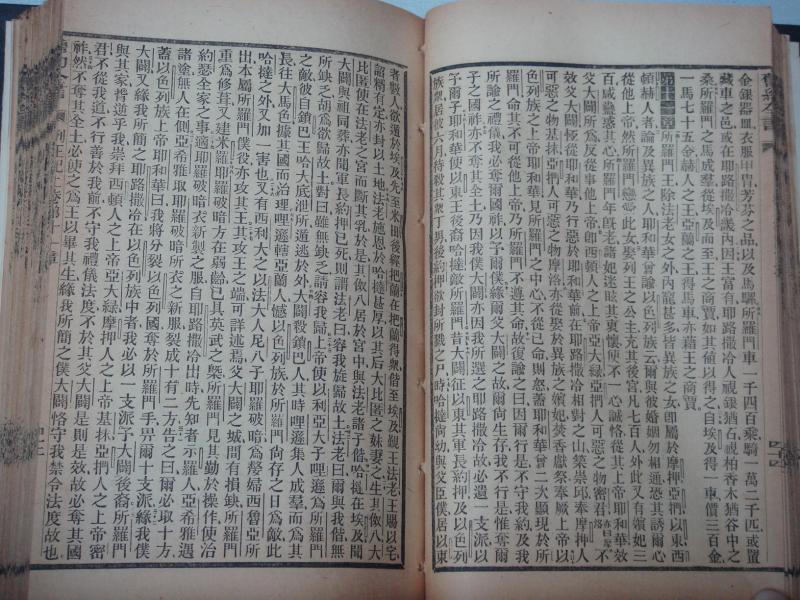 金銀器皿衣服甲冑芳芬之品以及馬騾所羅門車一千四百乘騎一萬二千匹或置
藏車之邑或在耶路撒冷護內因王富有耶路撒冷人視銀猶石視柏香木猶谷中之
桑所羅門之馬成羣從埃及而至王之商賈如其値以得之自埃及得一車價三百金
一馬七十五金赫人之王亞蘭之王得馬車亦藉王之商賈
第十一章所羅門王除法老女之外內寵甚多皆異族之女即屬於摩押亞捫以東西
頓赫人者論及異族之人耶和華曾諭以色列族云爾與彼婚姻勿相通恐其誘爾心
從他上帝然所羅門戀此女娶列王之公主充其後宮凡七百人外此又有嬪妃三
百咸蠱惑其心所羅門年旣老諸妃迷眩其衷懷使不一心誠恪從其上帝耶和華效
父大闢所爲反從事他上帝卽西頓人之上帝亞大綠亞捫人可惡之物密君不
效父大闢恆從耶和華乃行惡於耶和華前在耶路撒冷相對之山崇邱奉摩押人
可惡之物基抹亞捫人可惡之物摩洛亦從娶於異族之嬪妃焚香獻祭奉厥上帝以
色列族之上帝耶和華見所羅門之中心不從己命則怒蓋耶和華曾二次顯現於所
羅門命其不可從他上帝乃所羅門不遵其命故復諭之曰因爾行是不守我約及我
所諭之禮儀我必奪爾國祚以予爾僕緣爾父大闢之故爾尚生存我不行是惟奪爾
子之國祚亦不奪其全土乃因我僕大闢亦因我所選之耶路撒冷故必遺一支派以
予爾子耶和華使以東王後裔哈撻敵所羅門昔大闢征以東其軍長約押及以色列
族衆居彼六月待殺其衆丁男後約押欲封所戮之尸時哈撻尚幼與父臣僕居以東
者數人欲遁於埃及先至米田後經把蘭在把蘭得衆偕至埃及覲王法老王賜以宅
詔稍有定亦封以土地法老施恩於哈撻甚厚以其后大比匿之妹妻之生其俶八大
比匿使在法老之宮而斷其乳於是其俶居於宮中與法老諸子偕哈撻在埃及聞
大闢與祖同葬亦聞軍長約押已死則謂法老曰容我旋歸故土法老曰爾與我偕無
所缺乏胡爲欲歸故土對曰雖無缺乏請容我歸上帝使以利亞大子哩遜爲所羅門
之敵彼自鎖巴王哈大底泄所遁逃於外大闢殺鎖巴人其時哩遜集人成羣而爲其
長往大馬色據其國而治理哩遜轄亞蘭人憾以色列族於所羅門尚存之日爲敵此
哈撻之外又加一害也又有西利大之以法大人尼八子耶羅破暗爲嫠婦西魯亞所
出本屬所羅門僕役亦攻其王其攻王之端可詳述焉父大闢之城間有損缺所羅門
重爲修葺又建米羅耶羅破暗方在弱齡已具英武之槩所羅門見其勤於操作使治
約瑟全家之事適耶羅破暗衣新製之服自耶路撒冷出時先知者示羅人亞希雅遇
諸塗無人在側亞希雅取耶羅破暗所衣之新服裂成十有二方告之曰爾必取十方
蓋以色列族上帝耶和華曰我將分裂以色列國奪於所羅門手畀爾十支派緣我僕
大闢又緣我所簡之耶路撒冷在以色列族中者我必以一支派予大闢後裔所羅門
與其家揹逆乎我崇拜西頓人之上帝亞大綠摩押人之上帝基抹亞捫人之上帝密
君不從我道不行善於我前不守我禮儀法度不效於其父大闢是則是效故必奪其國
祚然不奪其全土必使之爲王以畢其生緣我所簡之僕大闢恪守我禁令法度故也
列王紀上卷第十一章